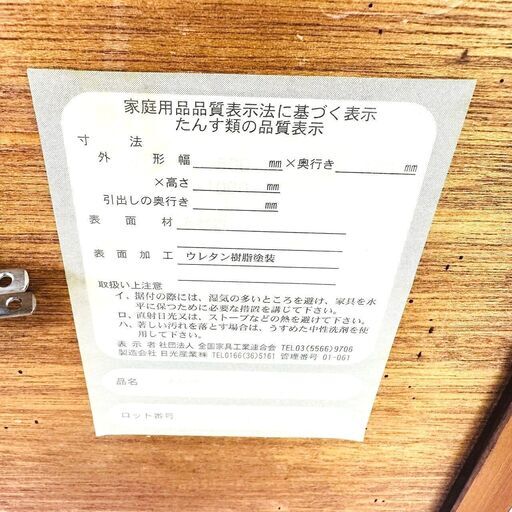 家庭用品品質表示法に基づく表示
たんす類の品質表示
寸法
外形幅 mm×奥行き mm
×高さ mm
引出しの奥行き mm
表面材
表面加工 ウレタン樹脂塗装
取扱い上注意
イ、据付の際には、湿気の多いところを避け、家具を水
平に保つために必要な措置を講じて下さい。
ロ、直射日光又は、ストーブなどの熱を避けて下さい。
ハ、著しい汚れを落とす場合は、うすめた中性洗剤を使
用して下さい。
表示者 社団法人 全国家具工業連合会 TEL03(5566)9706
製造会社 日光産業㈱ TEL0166(36)5161 管理番号 01-061
品名
ロット番号